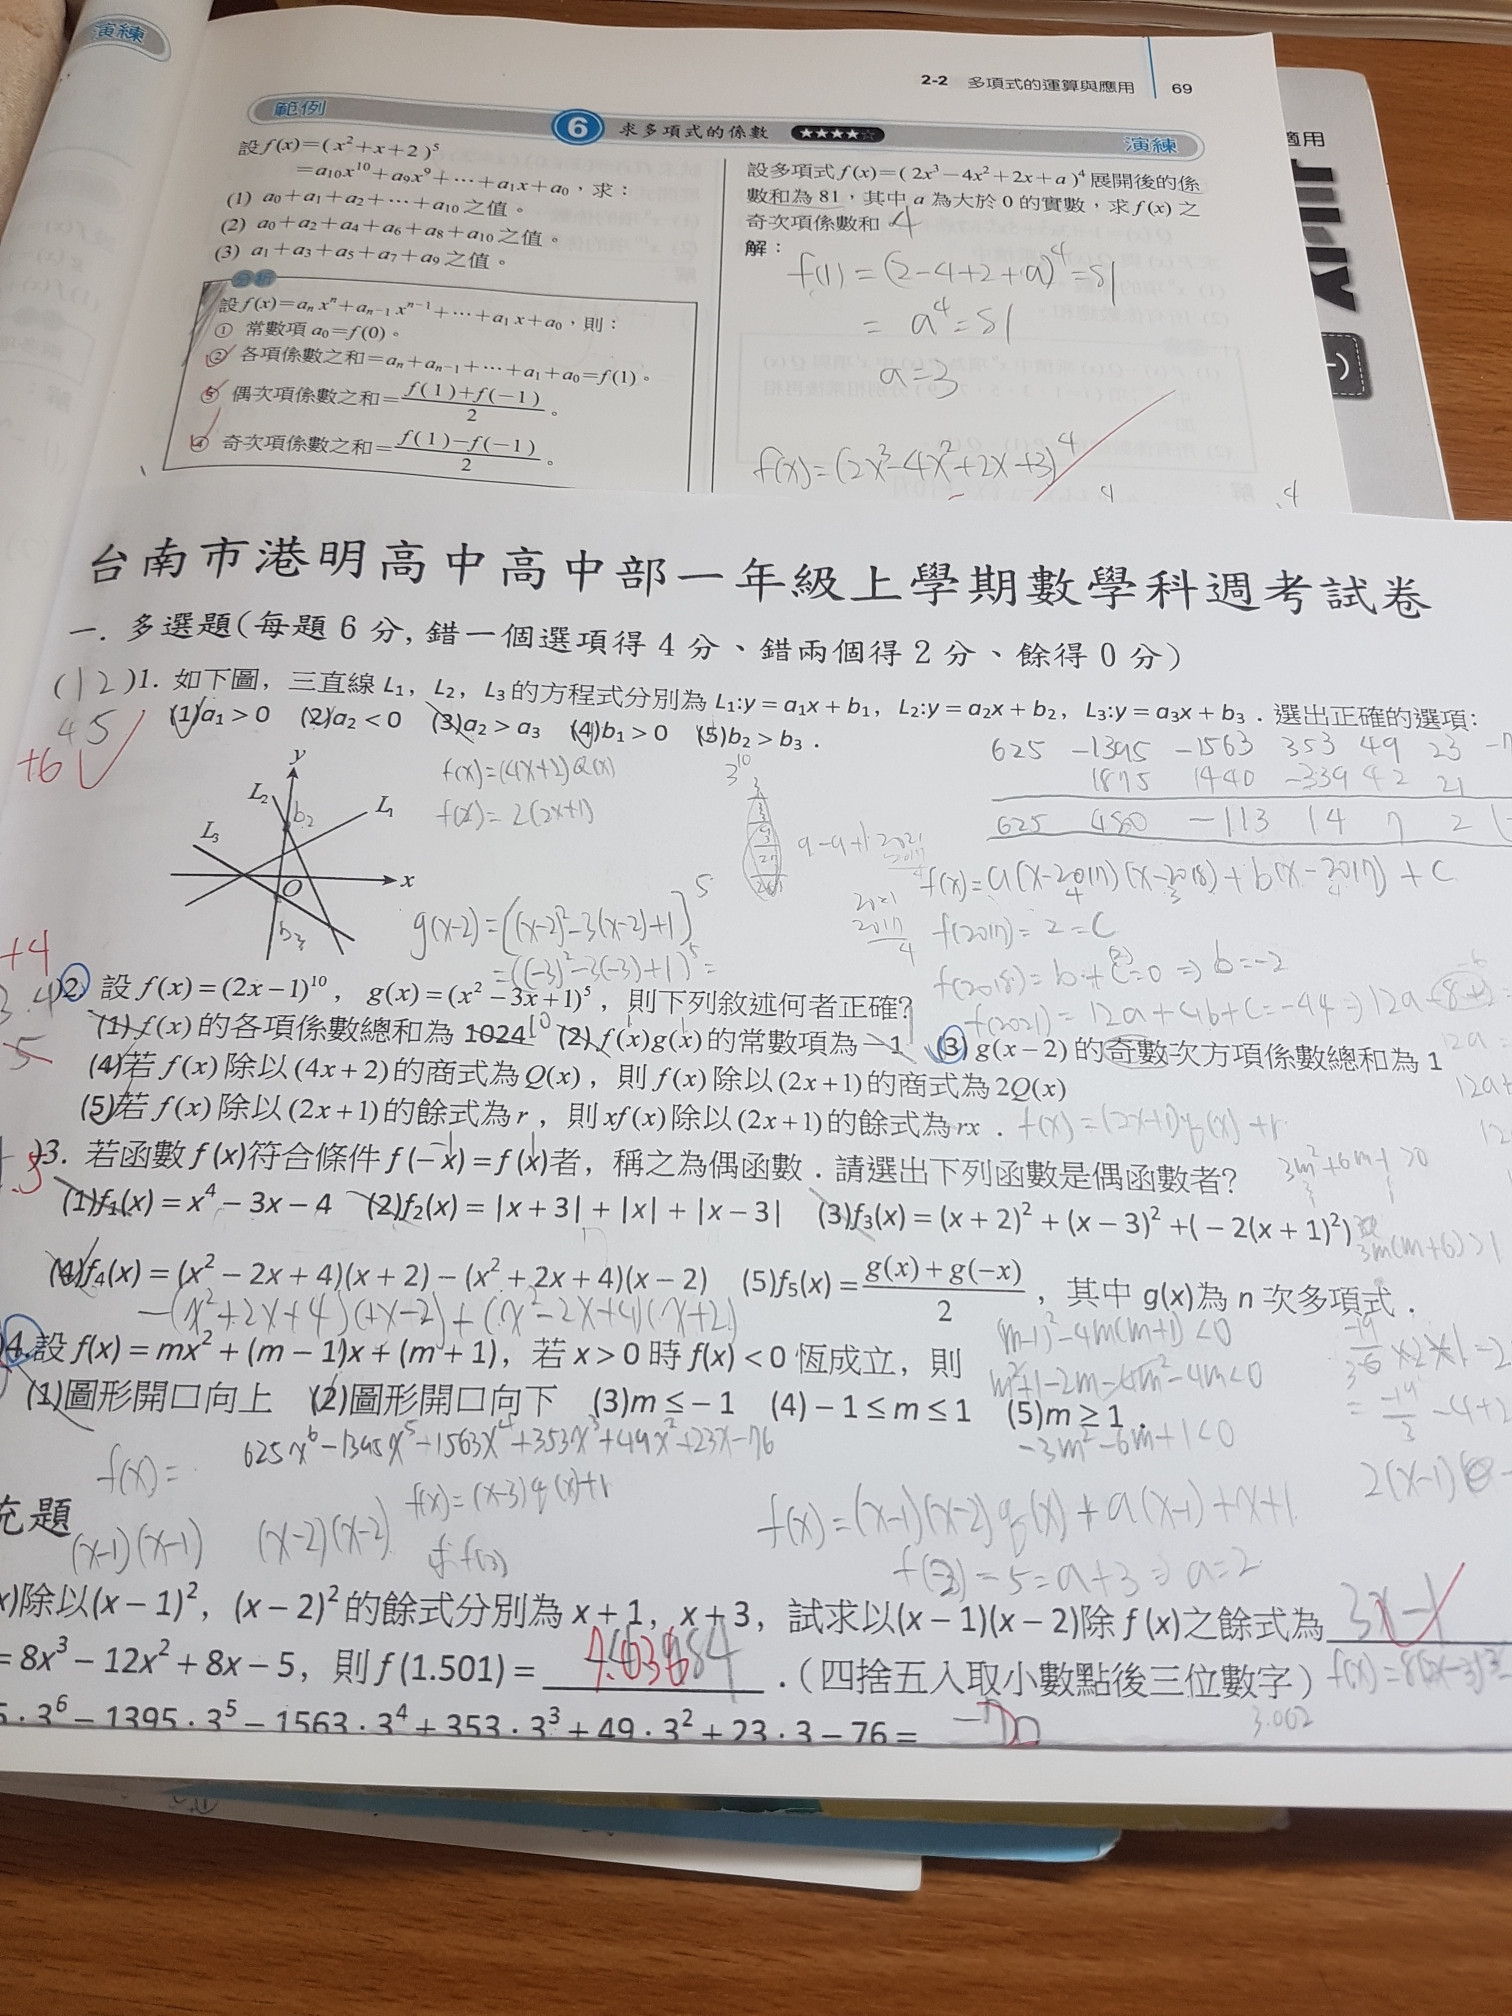 演練
2-2 多項式的運算與應用 69
範例 6 求多項式的係數 ★★★★☆ 演練
適用
設f(x)=(x²+x+2)⁵
=a₁₀x¹⁰+a₉x⁹+⋯+a₁x+a₀，求：
(1) a₀+a₁+a₂+⋯+a₁₀之值。
(2) a₀+a₂+a₄+a₆+a₈+a₁₀之值。
(3) a₁+a₃+a₅+a₇+a₉之值。
分析
設f(x)=aₙxⁿ+aₙ₋₁xⁿ⁻¹+⋯+a₁x+a₀，則：
① 常數項a₀=f(0)。
② 各項係數之和=aₙ+aₙ₋₁+⋯+a₁+a₀=f(1)。
③ 偶次項係數之和=(f(1)+f(-1))/2。
④ 奇次項係數之和=(f(1)-f(-1))/2。
設多項式f(x)=(2x³-4x²+2x+a)⁴展開後的係
數和為81，其中a為大於0的實數，求f(x)之
奇次項係數和 4
解：
f(1)=(2-4+2+a)⁴=81
=a⁴=81
a=3
f(x)=(2x³-4x²+2x+3)⁴
台南市港明高中高中部一年級上學期數學科週考試卷
一. 多選題(每題6分,錯一個選項得4分、錯兩個得2分、餘得0分)
(12)1. 如下圖，三直線L₁，L₂，L₃的方程式分別為L₁:y=a₁x+b₁，L₂:y=a₂x+b₂，L₃:y=a₃x+b₃．選出正確的選項:
45
(1)a₁>0 (2)a₂<0 (3)a₂>a₃ (4)b₁>0 (5)b₂>b₃．
+6
625 -1395 -1563 353 49 23
1875 1440 -339 42 21
625 480 -113 14 7 2
y
L₂
b₂
L₁
L₃
x
O
b₃
f(x)=(4x+2)Q(x)
f(x)=2(2x+1)
3¹⁰
f(x)=a(x-2017)(x-2018)+b(x-2017)+c
2021
2017
4
f(2017)=2=c
g(x-2)=[(x-2)²-3(x-2)+1]⁵
=((-3)²-3(-3)+1)⁵=
f(2021)=12a+4b+c=-44
+4
2. 設f(x)=(2x-1)¹⁰，g(x)=(x²-3x+1)⁵，則下列敘述何者正確?
(1)f(x)的各項係數總和為1024 (2)f(x)g(x)的常數項為-1 (3)g(x-2)的奇數次方項係數總和為1
(4)若f(x)除以(4x+2)的商式為Q(x)，則f(x)除以(2x+1)的商式為2Q(x)
(5)若f(x)除以(2x+1)的餘式為r，則xf(x)除以(2x+1)的餘式為rx．
f(x)=(2x+1)q(x)+r
3. 若函數f(x)符合條件f(-x)=f(x)者，稱之為偶函數．請選出下列函數是偶函數者?
(1)f₁(x)=x⁴-3x-4 (2)f₂(x)=|x+3|+|x|+|x-3| (3)f₃(x)=(x+2)²+(x-3)²+(-2(x+1)²)
3m(m+6)>1
(4)f₄(x)=(x²-2x+4)(x+2)-(x²+2x+4)(x-2) (5)f₅(x)=(g(x)+g(-x))/2，其中g(x)為n次多項式．
-(x²+2x+4)(+x-2)+(x²-2x+4)(x+2)
4.設f(x)=mx²+(m-1)x+(m+1)，若x>0時f(x)<0恆成立，則
(m-1)²-4m(m+1)<0
m²+1-2m-4m²-4m<0
(1)圖形開口向上 (2)圖形開口向下 (3)m≤-1 (4)-1≤m≤1 (5)m≥1．
-3m²-6m+1<0
625x⁶-1395x⁵-1563x⁴+353x³+49x²+23x-76
f(x)=
f(x)=(x-3)q(x)+r
f(x)=(x-1)(x-2)q(x)+a(x-1)+x+1
充題
(x-1)(x-1) (x-2)(x-2)
f(2)=5=a+3⇒a=2
x)除以(x-1)²，(x-2)²的餘式分別為x+1，x+3，試求以(x-1)(x-2)除f(x)之餘式為 3x-1
=8x³-12x²+8x-5，則f(1.501)= ．(四捨五入取小數點後三位數字)
3.002
5·3⁶-1395·3⁵-1563·3⁴+353·3³+49·3²+23·3-76=